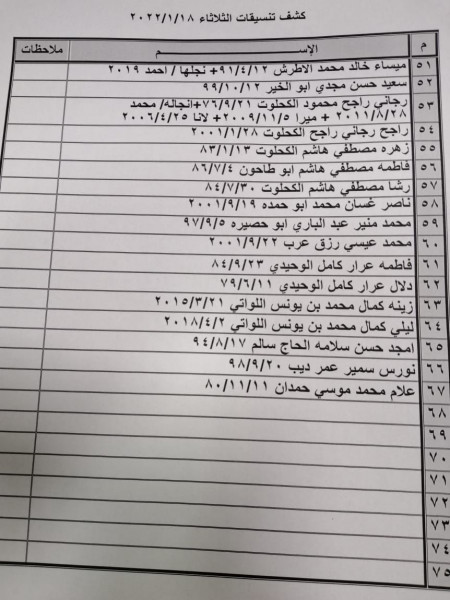 كشف تنسيقات الثلاثاء ٢٠٢٢/١/١٨
م الإســـــــم ملاحظات
٥١ ميساء خالد محمد الاطرش ٩١/٤/١٢+ نجلها / احمد ٢٠١٩
٥٢ سعيد حسن مجدي ابو الخير ٩٩/١٠/١٢
٥٣ رجاني راجح محمود الكحلوت ٧٦/٩/٢١+انجاله/ محمد
٢٠١١/٨/٢٨ + ميرا ٢٠٠٩/١١/٥+ لانا ٢٠٠٦/٤/٢٥
٥٤ راجح رجاني راجح الكحلوت ٢٠٠١/١/٢٨
٥٥ زهره مصطفي هاشم الكحلوت ٨٣/١/١٣
٥٦ فاطمه مصطفي هاشم ابو طاحون ٨٦/٧/٤
٥٧ رشا مصطفي هاشم الكحلوت ٨٤/٧/٣٠
٥٨ ناصر غسان محمد ابو حمده ٢٠٠١/٩/١٩
٥٩ محمد منير عبد الباري ابو حصيره ٩٧/٩/٥
٦٠ محمد عيسي رزق عرب ٢٠٠١/٩/٢٢
٦١ فاطمه عرار كامل الوحيدي ٨٤/٩/٢٣
٦٢ دلال عرار كامل الوحيدي ٧٩/٦/١١
٦٣ زينه كمال محمد بن يونس اللواتي ٢٠١٥/٣/٢١
٦٤ ليلي كمال محمد بن يونس اللواتي ٢٠١٨/٤/٢
٦٥ امجد حسن سلامه الحاج سالم ٩٤/٨/١٧
٦٦ نورس سمير عمر ديب ٩٨/٩/٢٠
٦٧ علام محمد موسي حمدان ٨٠/١١/١١
٦٨
٦٩
٧٠
٧١
٧٢
٧٣
٧٤
٧٥